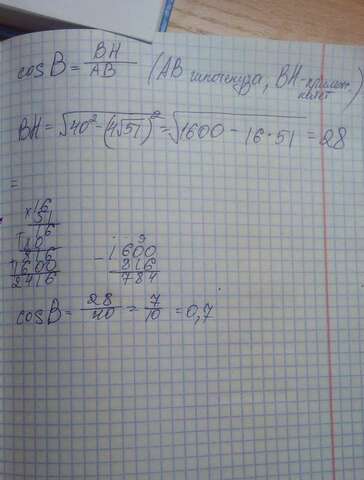 cos B = BH/AB (AB гипотенуза, BH-прилеж. катет)
BH = √40² - (4√51)² = √1600 - 16·51 = 28
=
×16
51
16
80
816
1600
2416
1600
- 816
784
cos B = 28/40 = 7/10 = 0,7